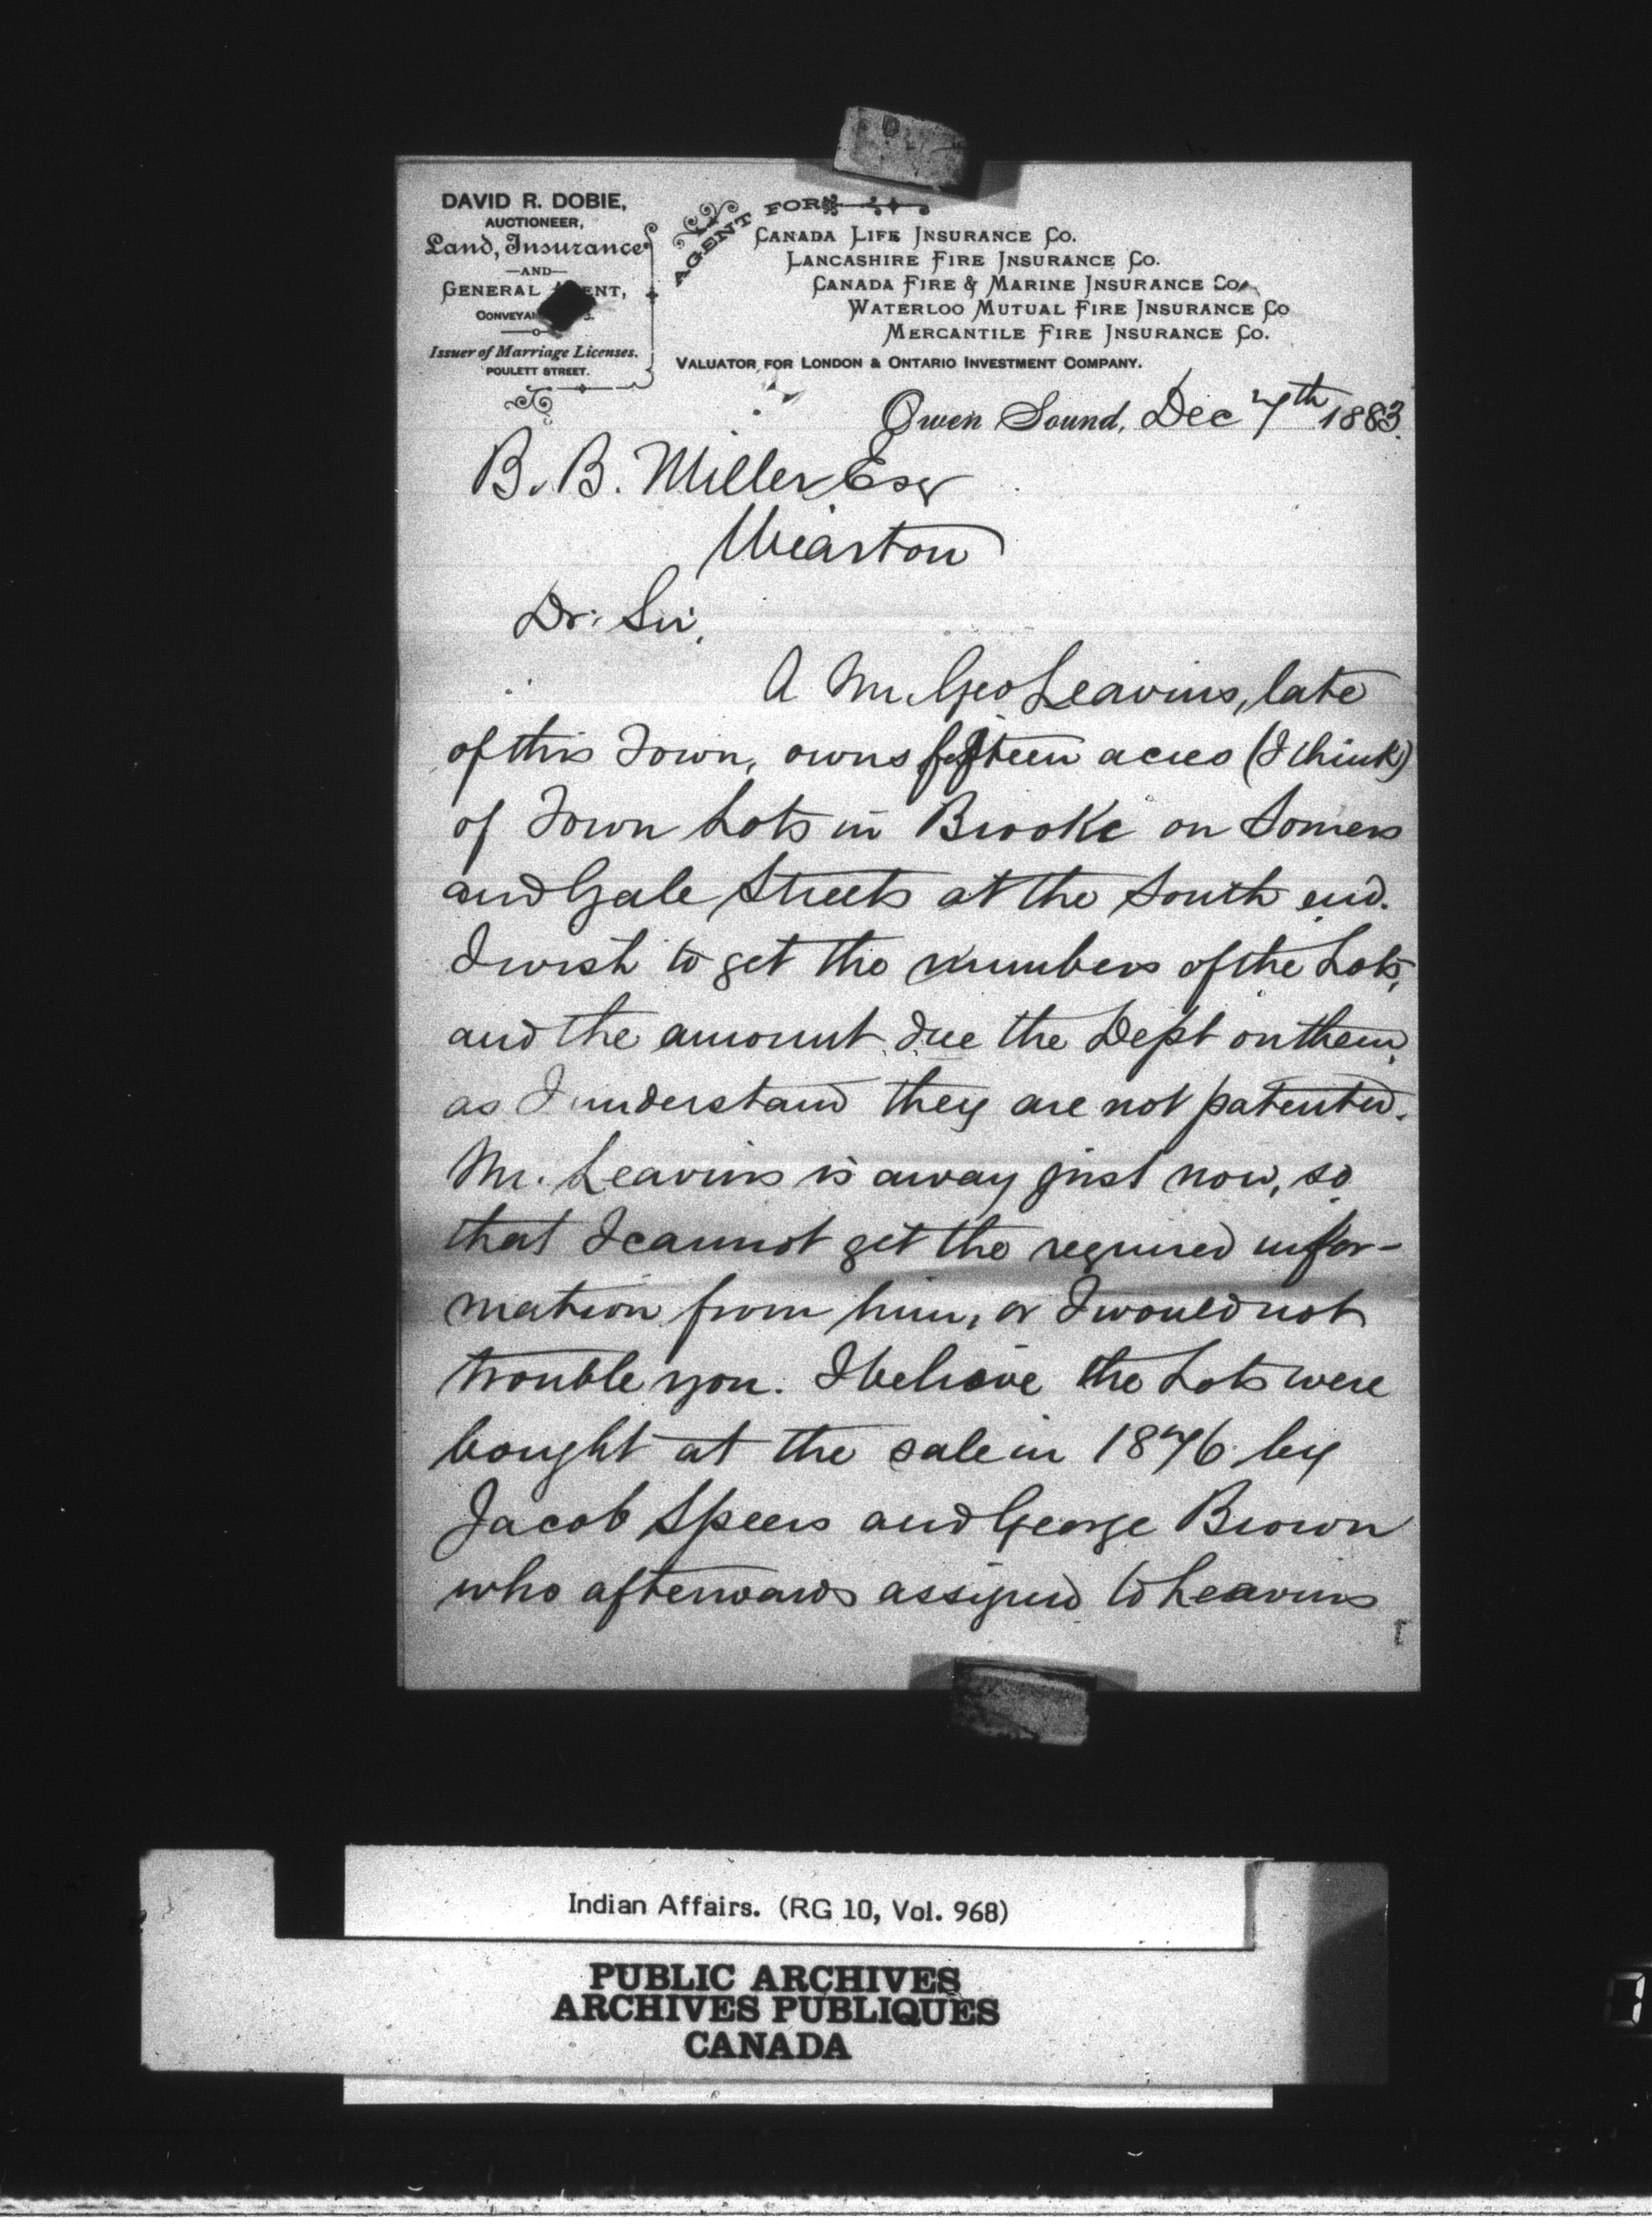 DAVID R. DOBIE,
AUCTIONEER,
Land, Insurance
—AND—
GENERAL ENT,
Issuer of Marriage Licenses.
POULETT STREET.
AGENT FOR
CANADA LIFE INSURANCE CO.
LANCASHIRE FIRE INSURANCE CO.
CANADA FIRE & MARINE INSURANCE CO.
WATERLOO MUTUAL FIRE INSURANCE CO
MERCANTILE FIRE INSURANCE CO.
VALUATOR FOR LONDON & ONTARIO INVESTMENT COMPANY.
Owen Sound, Dec 7th 1883.
B. B. Miller Esqr
Wiarton
Dr. Sir,
A Mr. Geo Leavins, late
of this Town, owns fifteen acres (I think)
of Town Lots in Brooke on Somers
and Gale Streets at the South end.
I wish to get the numbers of the Lots,
and the amount due the Dept on them,
as I understand they are not patented.
Mr. Leavins is away just now, so
that I cannot get the required infor-
mation from him, or I would not
trouble you. I believe the Lots were
bought at the sale in 1876 by
Jacob Speers and George Brown
who afterwards assigned to Leavins
Indian Affairs. (RG 10, Vol. 968)
PUBLIC ARCHIVES
ARCHIVES PUBLIQUES
CANADA